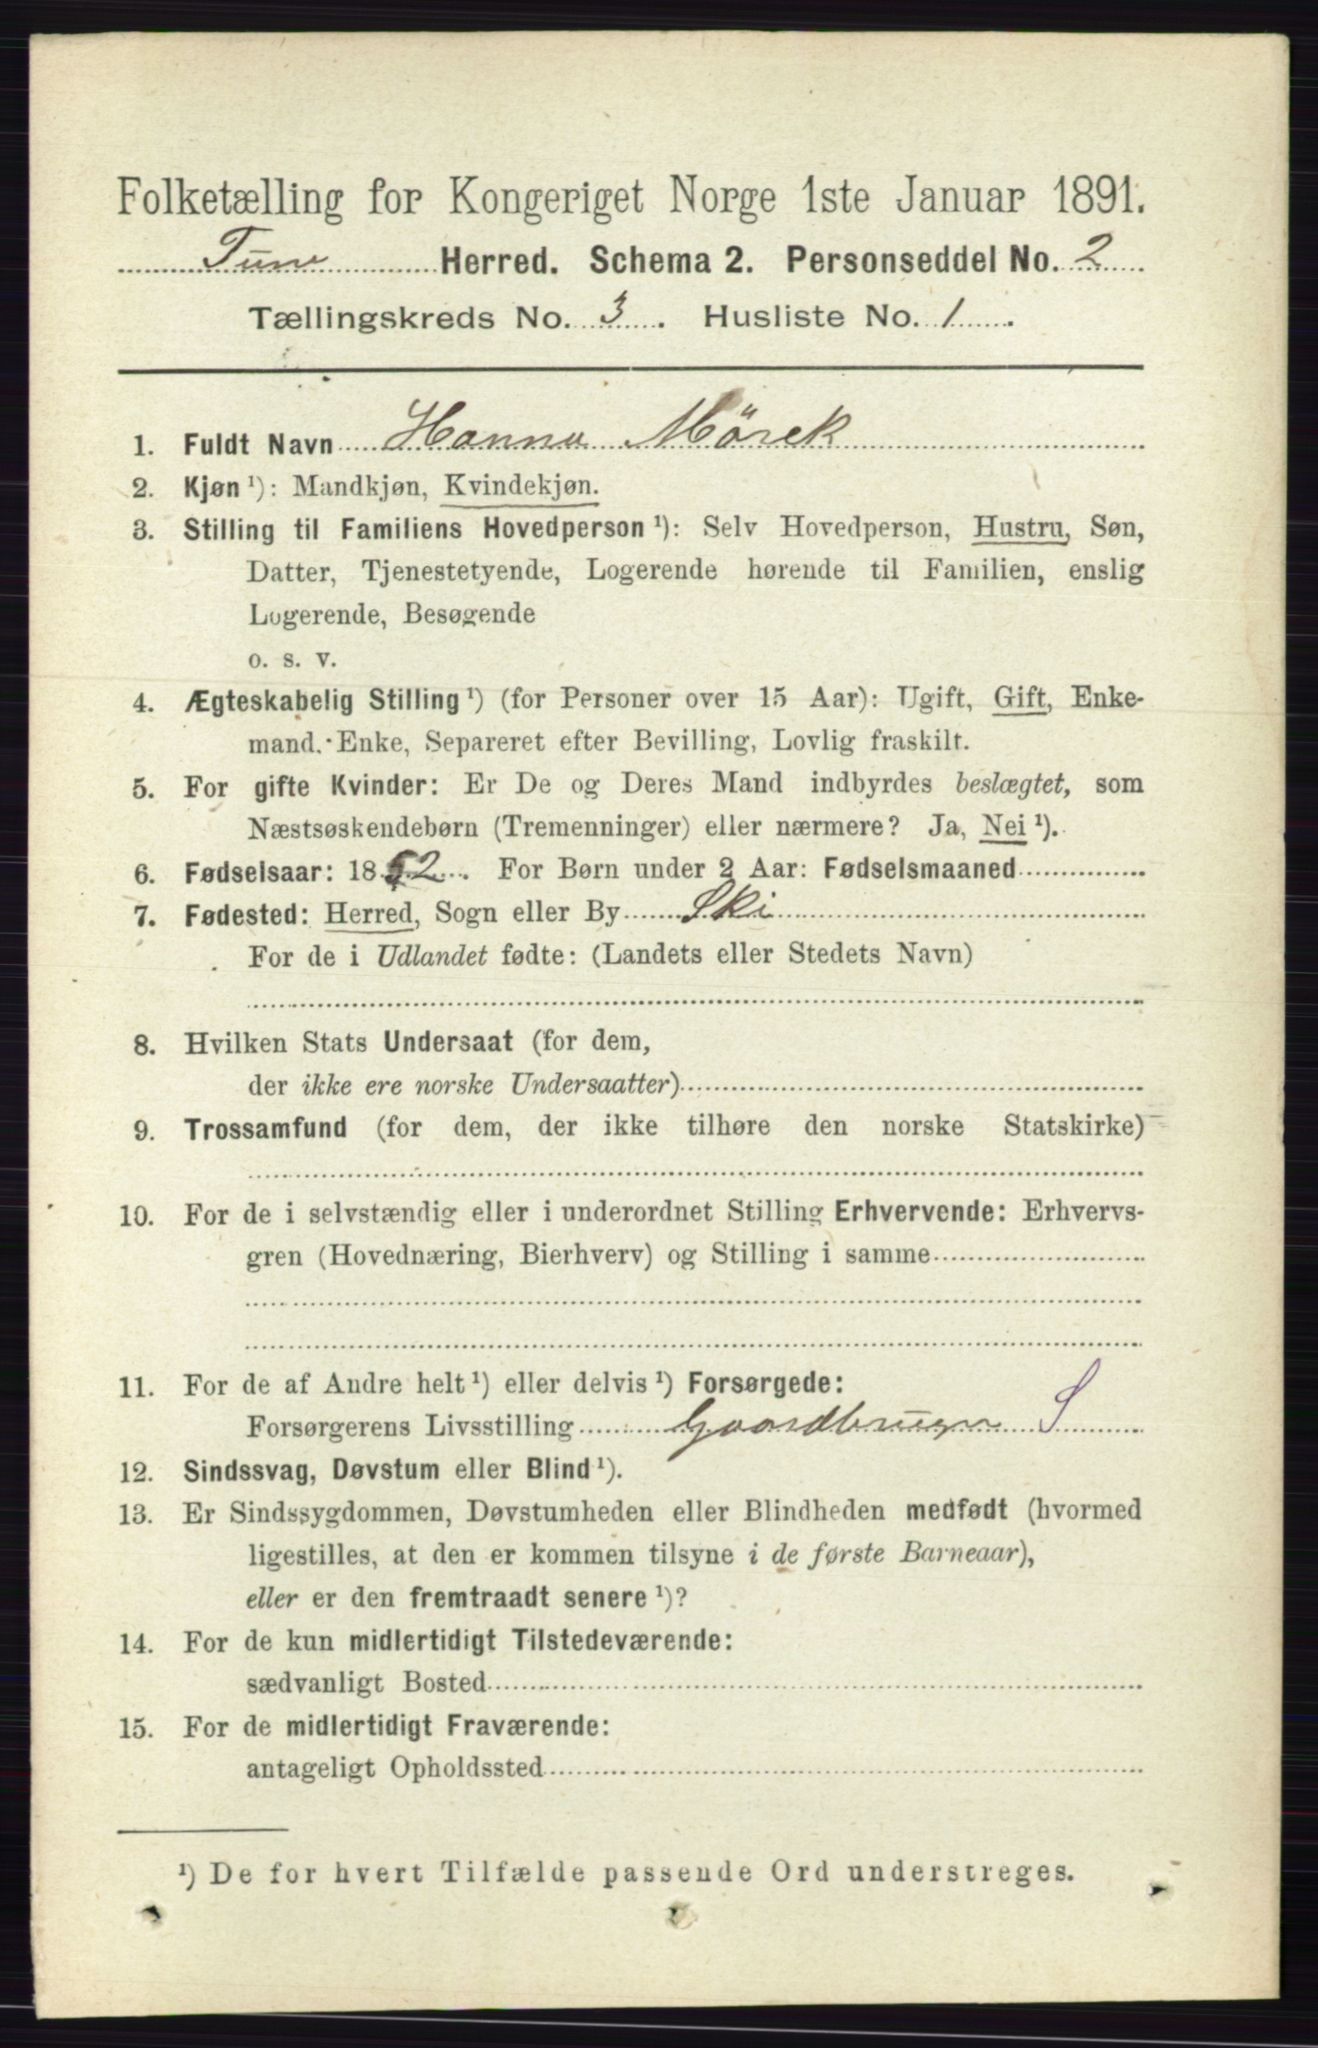 Folketælling for Kongeriget Norge 1ste Januar 1891.
Tune Herred. Schema 2. Personseddel No. 2
Tællingskreds No. 3. Husliste No. 1.
1. Fuldt Navn Hanna Mörck
2. Kjøn ¹): Mandkjøn, Kvindekjøn.
3. Stilling til Familiens Hovedperson ¹): Selv Hovedperson, Hustru, Søn,
Datter, Tjenestetyende, Logerende hørende til Familien, enslig
Logerende, Besøgende
o. s. v.
4. Ægteskabelig Stilling ¹) (for Personer over 15 Aar): Ugift, Gift, Enke-
mand, Enke, Separeret efter Bevilling, Lovlig fraskilt.
5. For gifte Kvinder: Er De og Deres Mand indbyrdes beslægtet, som
Næstsøskendebørn (Tremenninger) eller nærmere? Ja, Nei ¹).
6. Fødselsaar: 1852. For Børn under 2 Aar: Fødselsmaaned
7. Fødested: Herred, Sogn eller By Ski
For de i Udlandet fødte: (Landets eller Stedets Navn)
8. Hvilken Stats Undersaat (for dem,
der ikke ere norske Undersaatter)
9. Trossamfund (for dem, der ikke tilhøre den norske Statskirke)
10. For de i selvstændig eller i underordnet Stilling Erhvervende: Erhvervs-
gren (Hovednæring, Bierhverv) og Stilling i samme
11. For de af Andre helt ¹) eller delvis ¹) Forsørgede:
Forsørgerens Livsstilling Gaardbruger S
12. Sindssvag, Døvstum eller Blind ¹).
13. Er Sindssygdommen, Døvstumheden eller Blindheden medfødt (hvormed
ligestilles, at den er kommen tilsyne i de første Barneaar),
eller er den fremtraadt senere ¹)?
14. For de kun midlertidigt Tilstedeværende:
sædvanligt Bosted
15. For de midlertidigt Fraværende:
antageligt Opholdssted
¹) De for hvert Tilfælde passende Ord understreges.